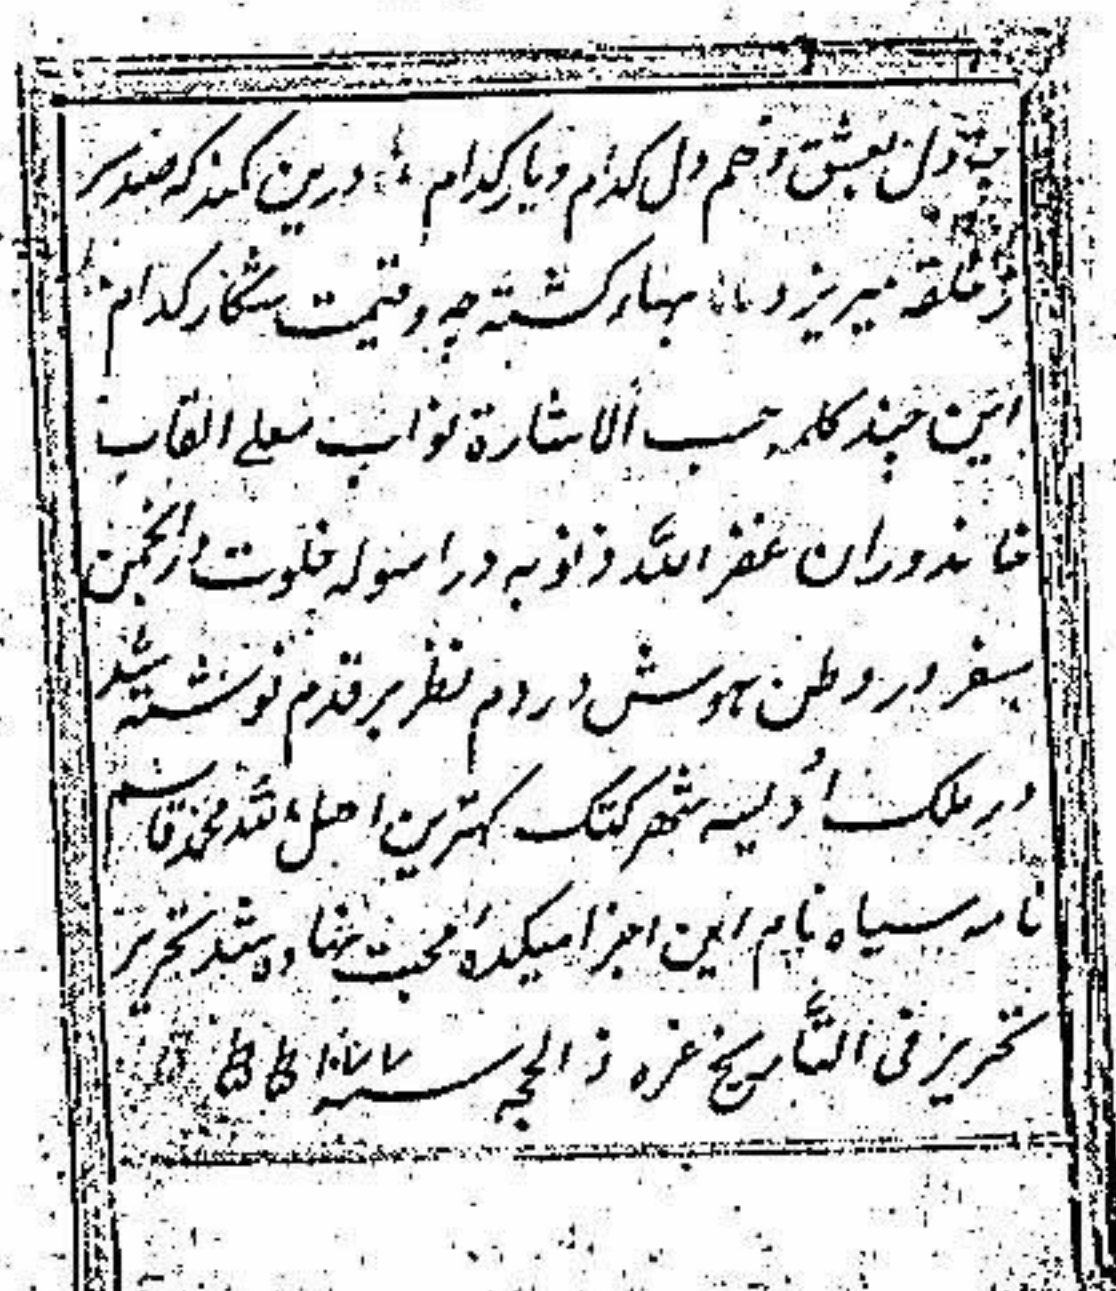 دل بعشق دهم دل کدام و یار کدام درین کمند که صد سر
ز حلقه میریزد بهاء کشته چه و قیمت شکار کدام
این چند کلمه حسب الاشارة نواب معلی القاب
خاندوران غفر الله ذنوبه در اسوله خلوت در انجمن
سفر در وطن هوش در دم نظر بر قدم نوشته شد
در ملک اودیسه شهر کتک کمترین اهل الله محمد قاسم
نامه سیاه نام این اجزا میکدهٔ محبت نهاده شد تحریر
تحریر فی التاریخ غره ذ الحجه سنه ۱۰۷۷